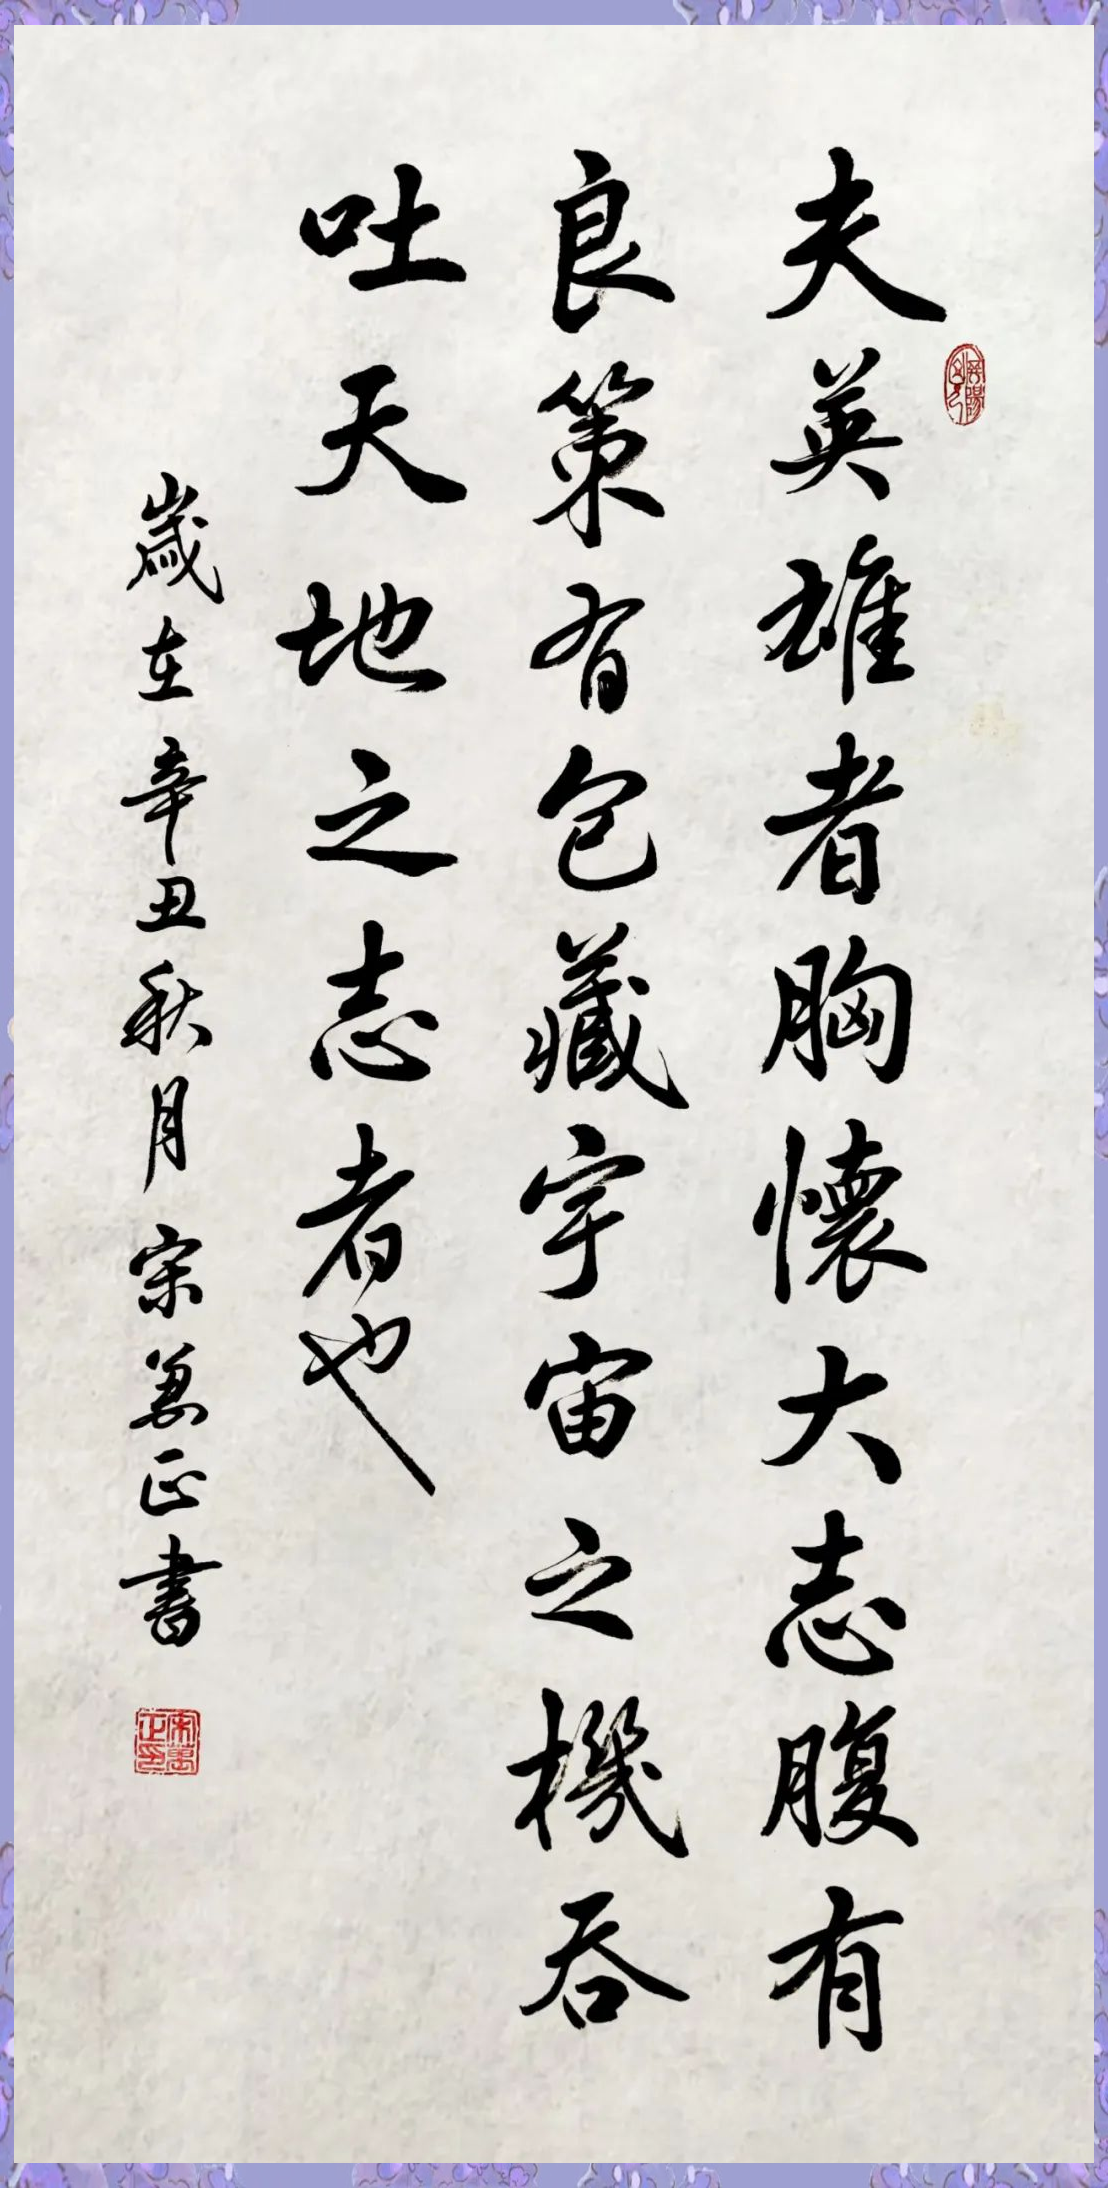 夫英雄者胸懷大志腹有
良策有包藏宇宙之機吞
吐天地之志者也
歲在辛丑秋月宋萬正書
宋萬正印